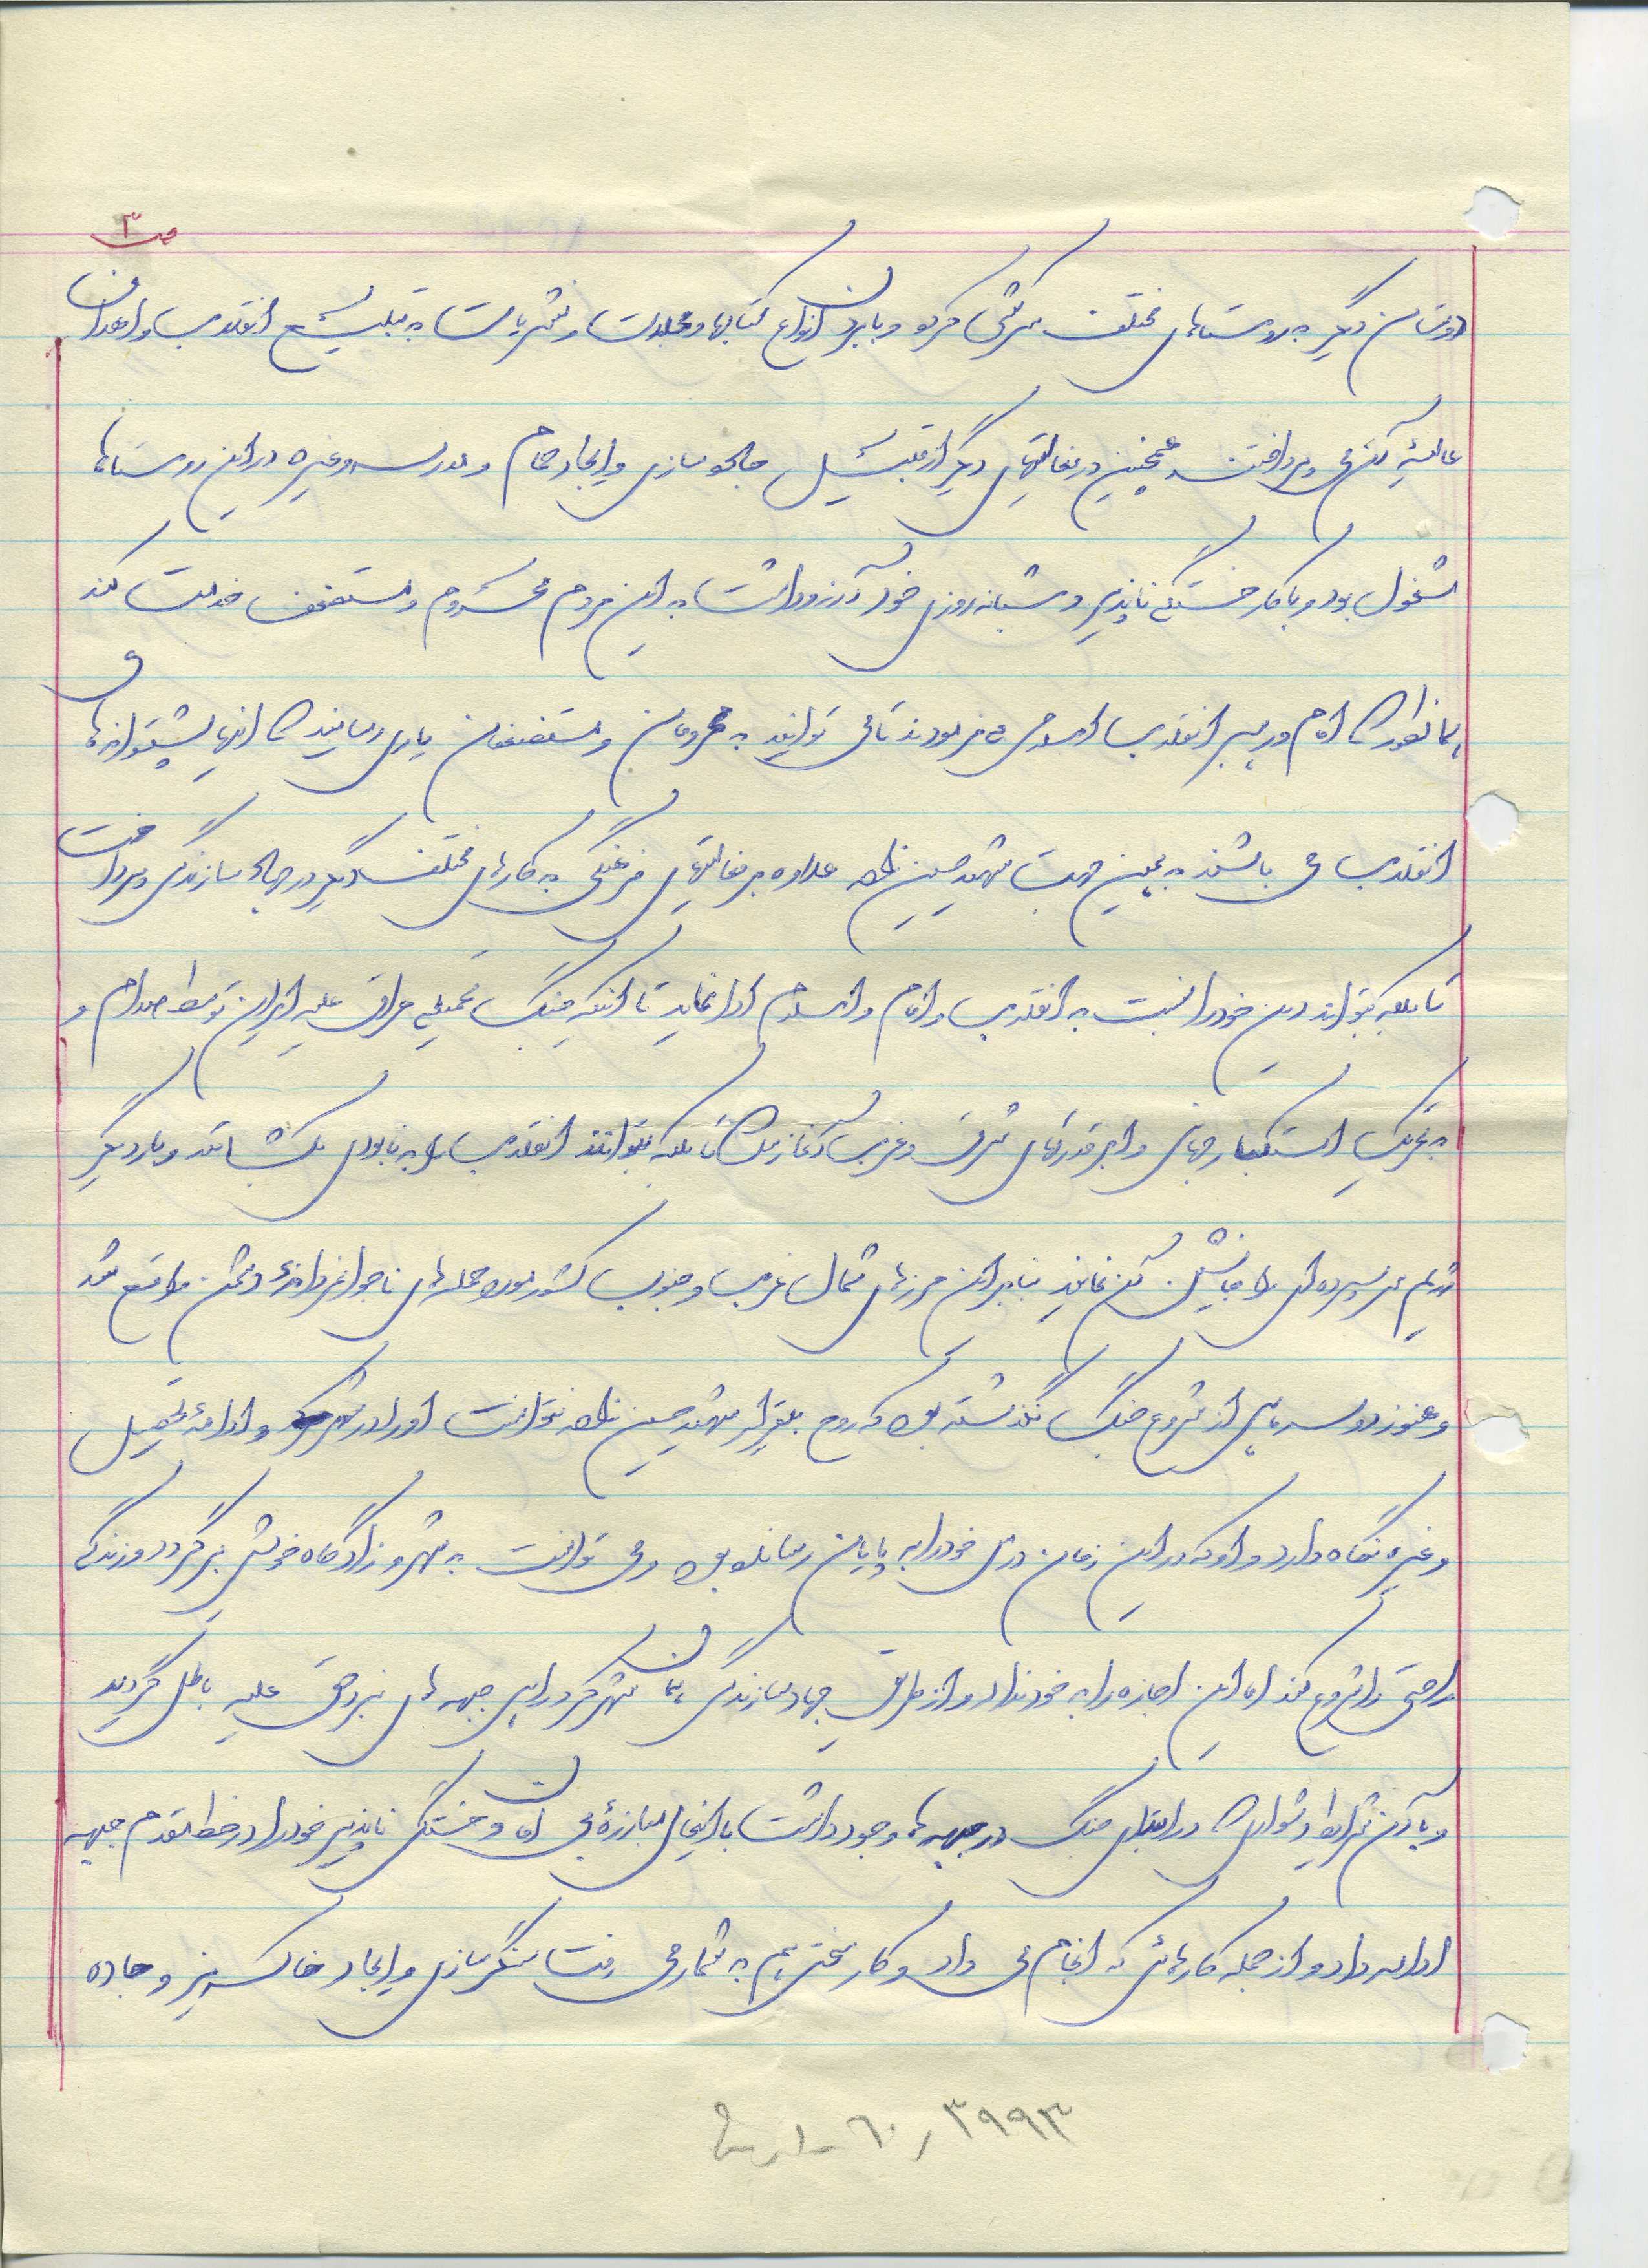 ص ۳
دوستان دیگر به روستاهای مختلف سرکشی میکرد و با بردن انواع کتابها و مجلات و نشریات به تبلیغ انقلاب و اهداف
عالیه آن می پرداخت و همچنین در فعالیتهای دیگر از قبیل جاده سازی و ایجاد حمام و مدرسه و غیره در این روستاها
مشغول بود و با کار خستگی ناپذیر و شبانه روزی خود آرزو داشت به این مردم محروم و مستضعف خدمت کند
همانطور که امام و رهبر انقلاب اسلامی فرمودند تا می توانید به محرومان و مستضعفان یاری رسانید که اینها پشتوانه های
انقلاب می باشند به همین جهت شهید حسین علاوه بر فعالیتهای فرهنگی به کارهای مختلف دیگر در جهاد سازندگی پرداخت
تا بلکه بتواند دین خود را نسبت به انقلاب و امام و اسلام ادا نماید تا اینکه جنگ تحمیلی عراق علیه ایران توسط صدام و
به تحریک استکبار جهانی و ابرقدرتهای شرق و غرب آغاز شد تا بلکه بتوانند انقلاب را به نابودی بکشانند و بار دیگر
رژیم سرسپرده ای را جانشین آن نمایند بنابراین مرزهای شمال غرب و جنوب کشور مورد حمله های ناجوانمردانهٔ دشمن واقع شد
و هنوز دو سه ماهی از شروع جنگ نگذشته بود که روح بیقرار شهید حسین نتوانست او را در شهرکرد و ادامهٔ تحصیل
و غیره نگاه دارد و او که در این زمان درس خود را به پایان رسانده بود و می توانست به شهر و زادگاه خویش برگردد و زندگی
راحتی را شروع کند اما این اجازه را به خود نداد و از طریق جهاد سازندگی همان شهرکرد راهی جبهه های نبرد حق علیه باطل گردید
و با آن شرایط دشواری که در ابتدای جنگ در جبهه ها وجود داشت با اینحال مبارزهٔ بی امان و خستگی ناپذیر خود را در خط مقدم جبهه
ادامه داد و از جمله کارهائی که انجام می داد و کار سختی هم به شمار می رفت سنگر سازی و ایجاد خاکریز و جاده
۶۰/۳۹۹۳